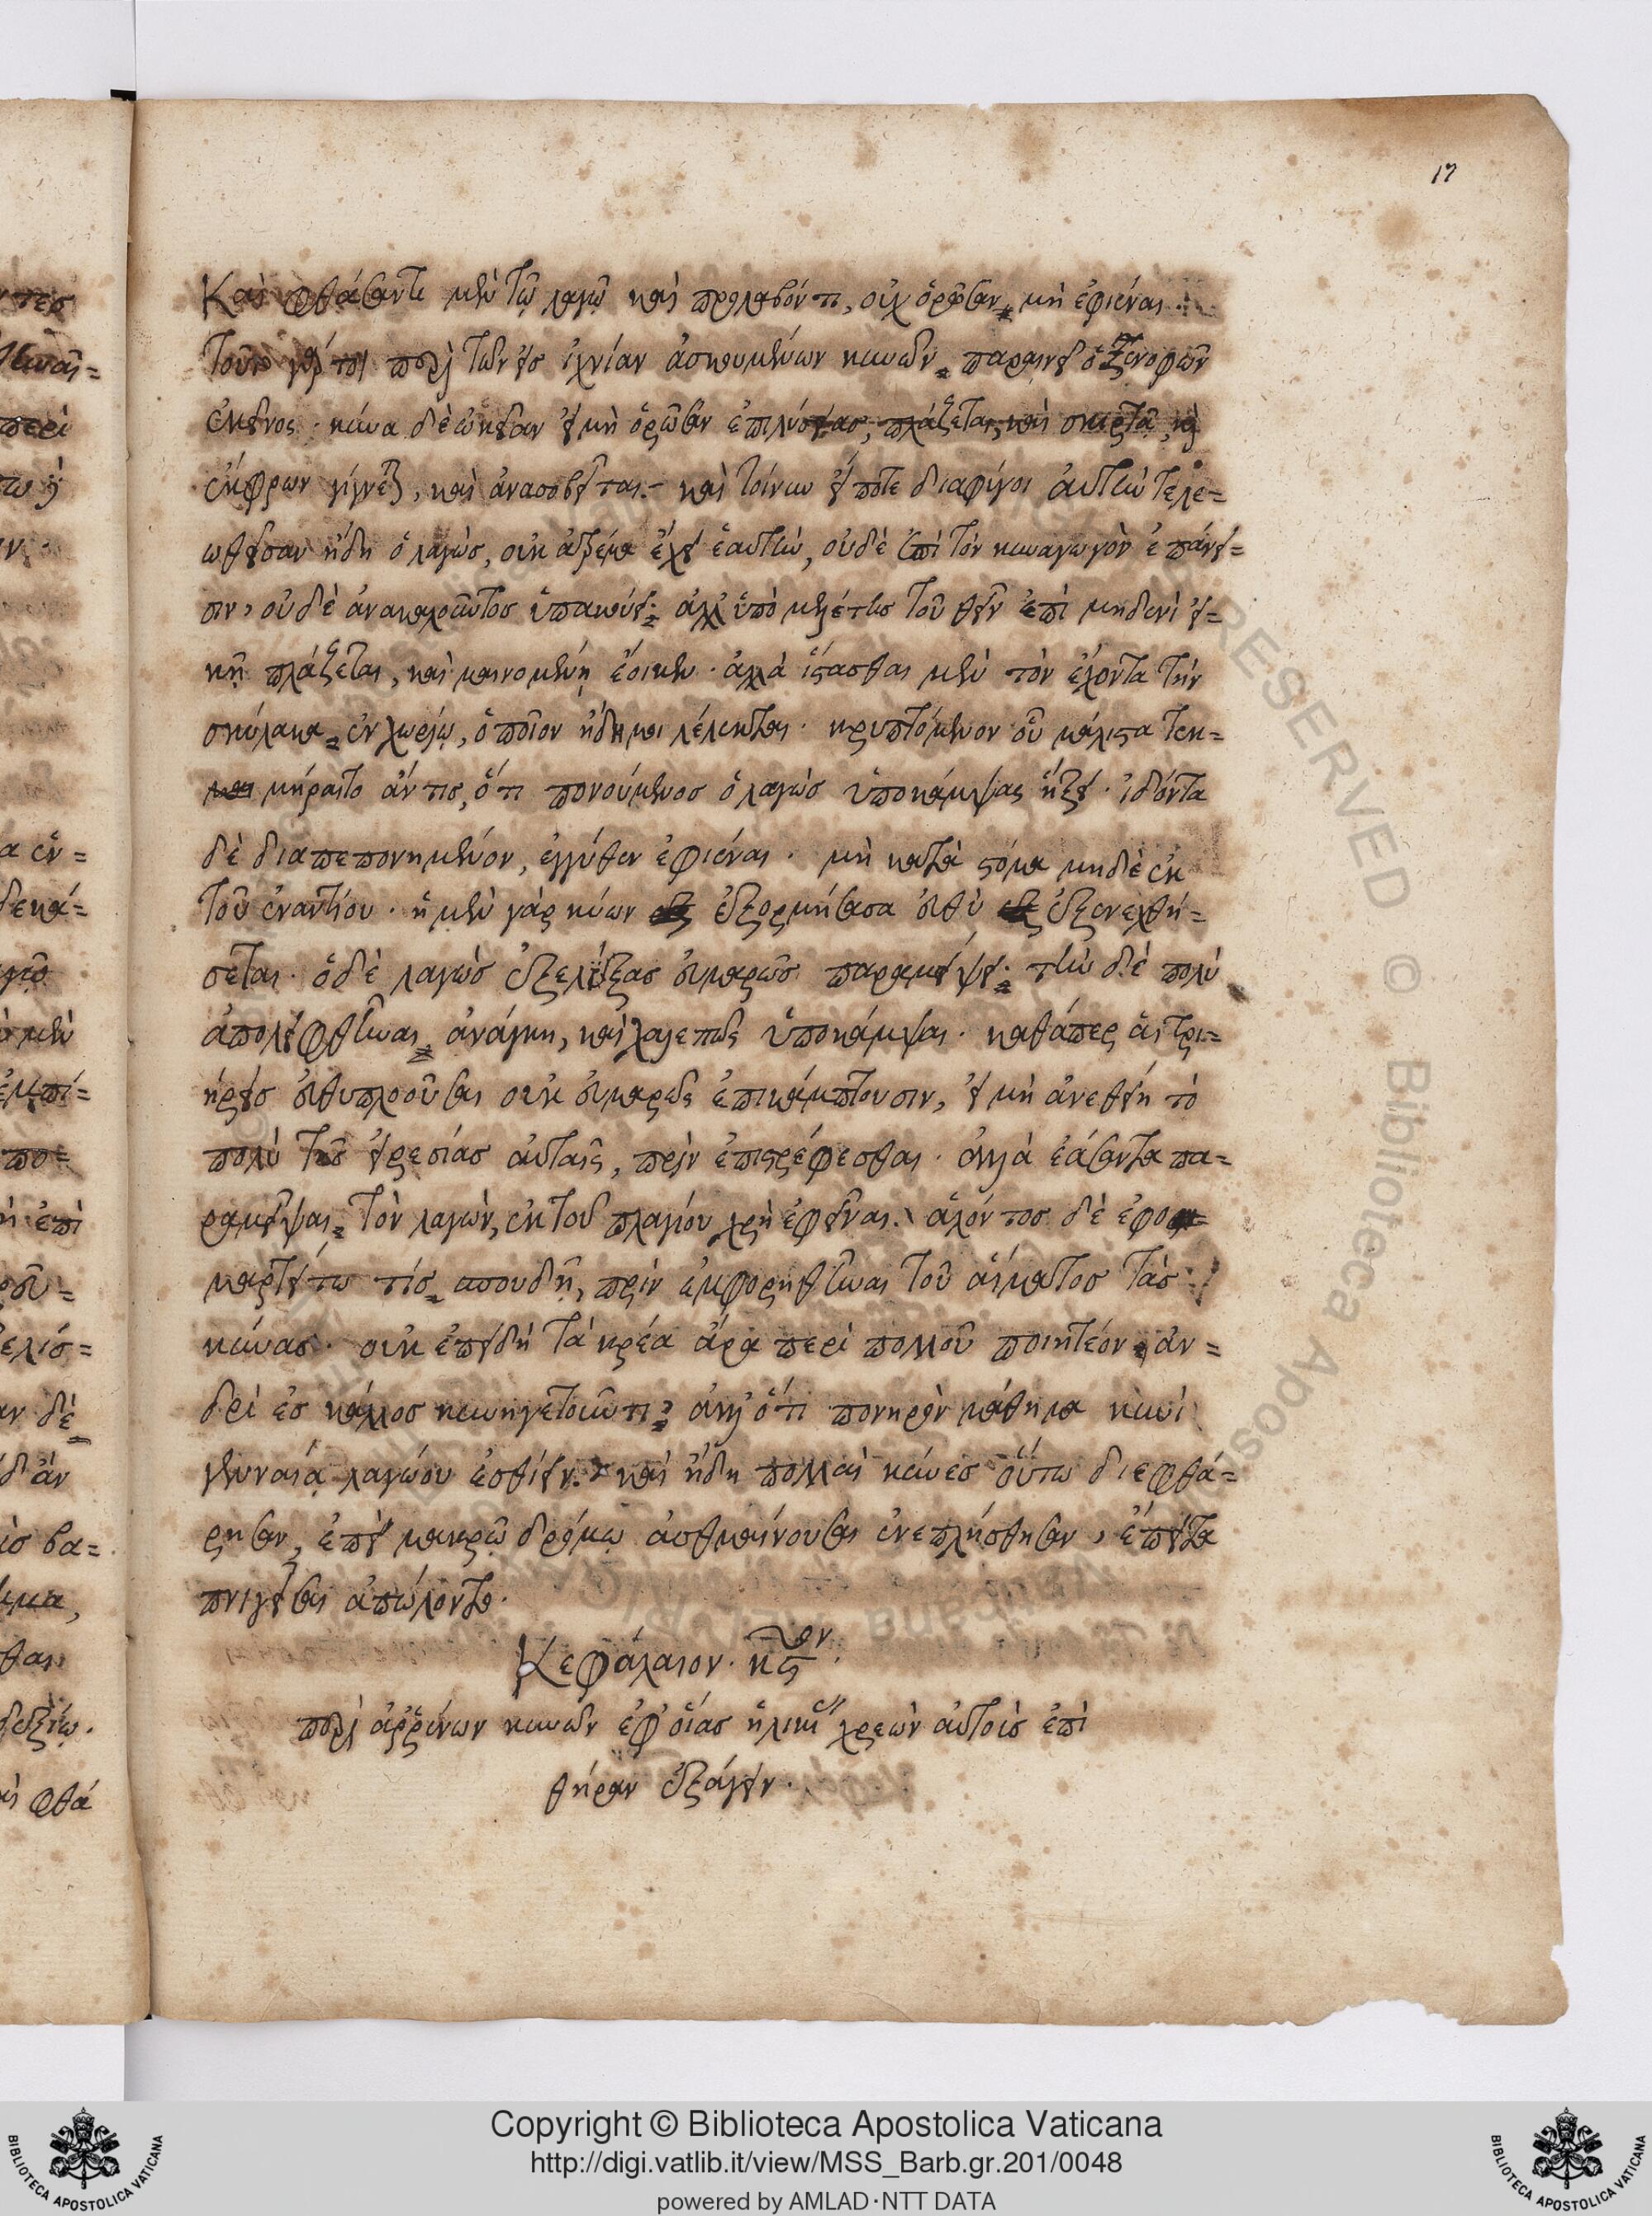 17
Καὶ φθάσαντι μὲν τῷ λαγῷ καὶ προλαβόντι, οὐχ ὁρῶσαν μὴ ἐφιέναι.
τοῦτο γάρ τοι περὶ τῶν εἰς ἰχνίαν ἀσκουμένων κυνῶν παραινεῖ ὁ Ξενοφῶν
ἐκεῖνος. κύνα δὲ ὠκεῖαν εἰ μὴ ὁρῶσαν ἐπιλύσειας, πλάζεται, καὶ σκιρτᾷ, καὶ
ἔκφρων γίγνεται, καὶ ἀνασοβεῖται. καὶ τοίνυν εἴποτε διαφύγοι αὐτὴν τελε=
ωθεῖσαν ἤδη ὁ λαγὼς, οὐκ ἀτρέμα ἔχει ἑαυτὴν, οὐδὲ ἐπὶ τὸν κυναγωγὸν ἐπάνει=
σιν, οὐδὲ ἀνακαλοῦντος ὑπακούει. ἀλλ' ὑπὸ μελέτης τοῦ θεῖν ἐπὶ μηδενὶ εἰ=
κῇ πλάζεται, καὶ μαινομένῃ ἔοικεν. ἀλλὰ ἵστασθαι μὲν τὸν ἔχοντα τὴν
σκύλακα ἐν χωρίῳ, ὁποῖον ἤδη μοι λέλεκται. κρυπτόμενον οὗ μάλιστα τεκ=
μήραιτο ἄν τις, ὅτι πονούμενος ὁ λαγὼς ὑποκάμψας ἥξει. ἰδόντα
δὲ διαπεπονημένον, ἐγγύθεν ἐφιέναι. μὴ κατὰ στόμα μηδὲ ἐκ
τοῦ ἐναντίου. ἡ μὲν γὰρ κύων ἐξορμήσασα εὐθὺ ἐξενεχθή=
σεται. ὁ δὲ λαγὼς ἐξελίξας εὐμαρῶς παραμείψει. τὴν δὲ πολὺ
ἀπολειφθῆναι ἀνάγκη, καὶ χαλεπῶς ὑποκάμψαι. καθάπερ αἱ τρι=
ήρεις εὐθυπλοοῦσαι οὐκ εὐμαρῶς ἐπικάμπτουσιν, εἰ μὴ ἀνεθείη τὸ
πολὺ τῆς εἰρεσίας αὐταῖς, πρὶν ἐπιστρέφεσθαι. ἀλλὰ ἐάσαντα πα=
ραμεῖψαι τὸν λαγὼν, ἐκ τοῦ πλαγίου χρὴ ἐφεῖναι. ἁλόντος δὲ ἐφο=
μαρτείτω τίς σπουδῇ, πρὶν ἐμφορηθῆναι τοῦ αἵματος τὰς
κύνας. οὐκ ἐπειδὴ τὰ κρέα ἄρα περὶ πολλοῦ ποιητέον ἀν=
δρὶ ἐς κάλλος κυνηγετοῦντι. ἀλλ' ὅτι πονηρὸν μάθημα κυνὶ
γενναίᾳ λαγώου ἐσθίειν. καὶ ἤδη πολλαὶ κύνες οὕτω διεφθά=
ρησαν, ἐπεὶ μακρῷ δρόμῳ ἀσθμαίνουσαι ἐνεπλήσθησαν, ἔπειτα
πνιγεῖσαι ἀπώλοντο.
Κεφάλαιον. κϛον.
περὶ ἀῤῥένων κυνῶν ἐφ' οἵας ἡλικίας χρεὼν αὐτοὺς ἐπὶ
θήραν ἐξάγειν.
Copyright © Biblioteca Apostolica Vaticana
http://digi.vatlib.it/view/MSS_Barb.gr.201/0048
powered by AMLAD·NTT DATA
BIBLIOTECA APOSTOLICA VATICANA
BIBLIOTECA APOSTOLICA VATICANA